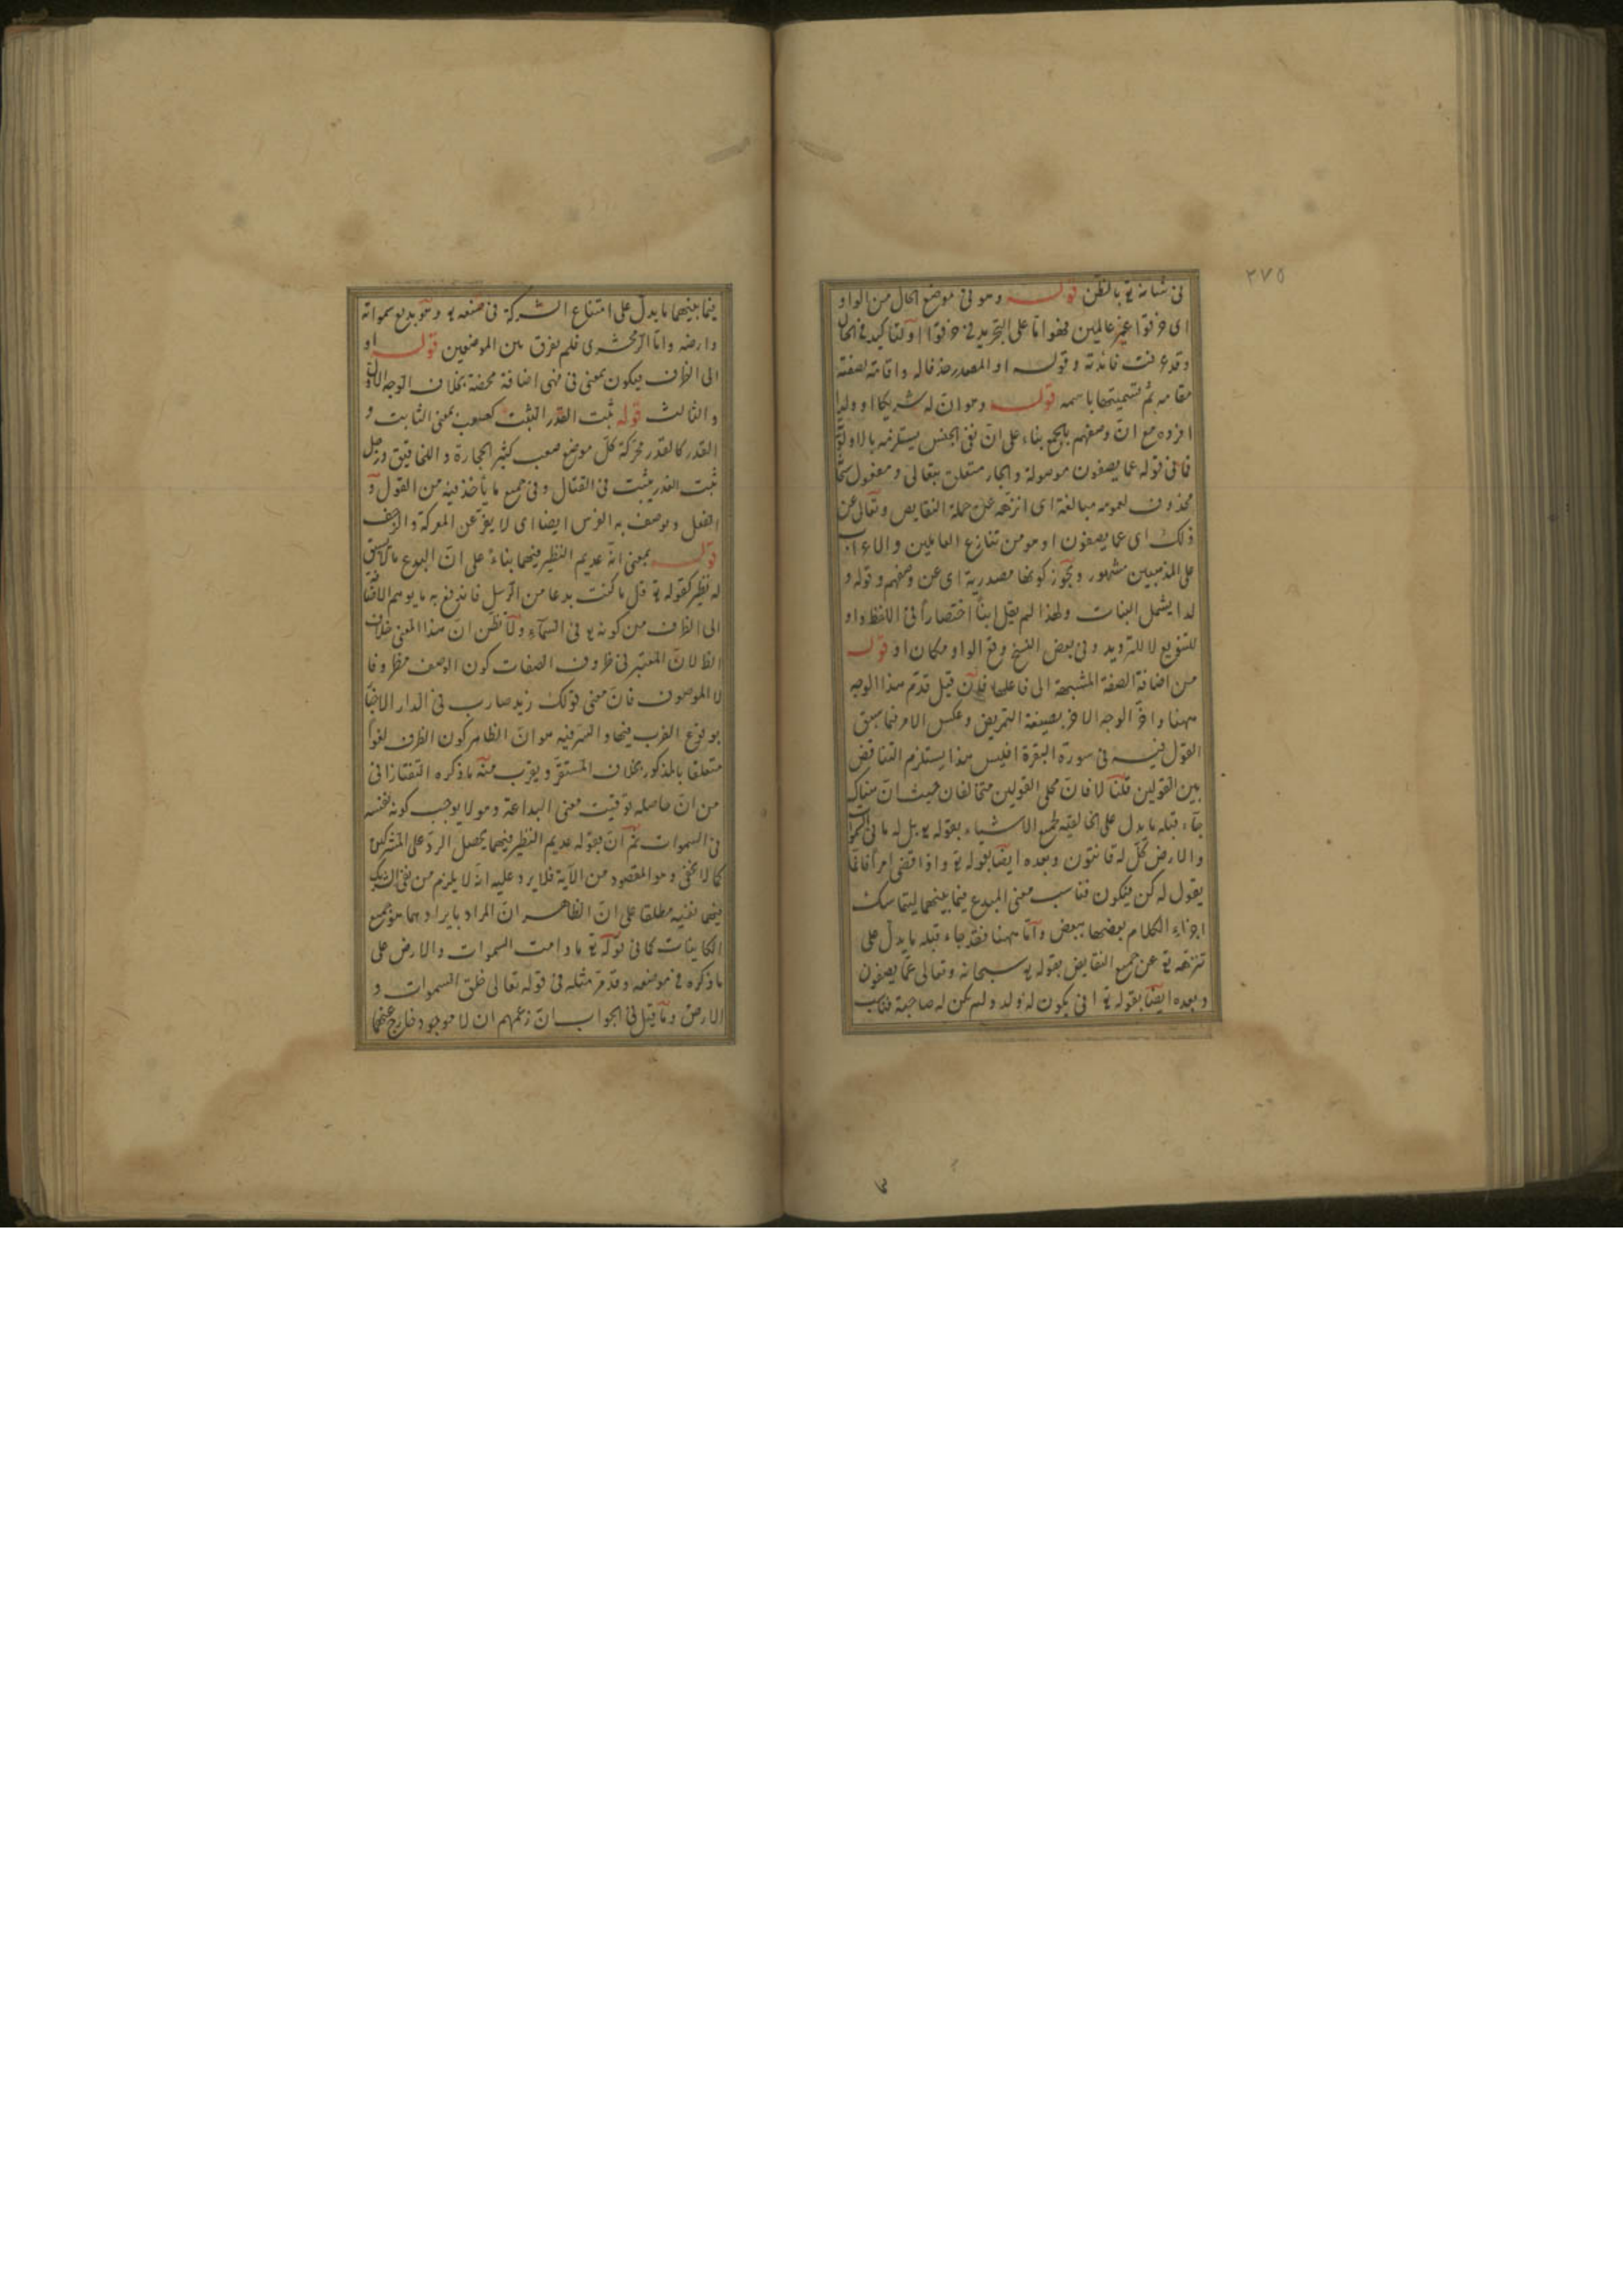 ٢٧٥
في شانه تع بالظن قوله وهو في موضع الحال من الواو
اى خرقوا غير عالمين فهو اما على التجريد في خرقوا او للتاكيد في الحال
وقد عرفت فائدته وقوله او المصدر حذفا له واقامة لصفته
مقامه ثم تسميتها باسمه قوله وهو ان له شريكا او ولدا
افرده مع ان وصفهم بالجمع بناء على ان نفى الجنس يستلزمه بالاولوية
فما في قوله عما يصفون موصولة والجار متعلق بتعالى ومفعول
محذوف لعمومه مبالغة اى انزهه عن جملة النقايص وتعالى عن
ذلك اى عما يصفون او هو من تنازع العاملين والاعراب
على المذهبين مشهور ويجوز كونها مصدرية اى عن وصفهم وقوله و
لدا يشمل البنات ولهذا لم يقل ابنا اختصارا في اللفظ واو
للتنويع لا للترديد وفي بعض النسخ وقع الواو مكان او قوله
من اضافة الصفة المشبهة الى فاعلها فان قيل قدم هذا الوجه
ههنا واخر الوجه الاخر بصيغة التمريض وعكس الامر فيما سبق
القول فيه في سورة البقرة افليس هذا يستلزم التناقض
بين القولين قلنا لا فان محلى القولين متخالفان حيث ان هناك
جاء قبله ما يدل على الخالقية لجميع الاشياء بقوله تع بل له ما في السموات
والارض كل له قانتون وبعده ايضا بقوله تع واذا قضى امرا فانما
يقول له كن فيكون فناسب معنى المبدع فيما بينهما ليتماسك
اجزاء الكلام بعضها ببعض واما ههنا فقد جاء قبله ما يدل على
تنزهه تع عن جميع النقايض بقوله تع سبحانه وتعالى عما يصفون
وبعده ايضا بقوله تع انى يكون له ولد ولم تكن له صاحبة فناسب
فيما بينهما ما يدل على امتناع الشركة في صنعه تع وهو بديع سمواته
وارضه واما الزمخشرى فلم يفرق بين الموضعين قوله او
الى الظرف فيكون بمعنى في فهى اضافة محضة بخلاف الوجه الاول
والثالث قوله ثبت الغدر الثبت كصعب بمعنى الثابت و
الغدر كالقدر محركة كل موضع صعب كثير الحجارة واللخاقيق ورجل
ثبت الغدر يثبت في القتال وفي جميع ما يأخذ فيه من القول و
الفعل ويوصف به الفرس ايضا اى لا يفر عن المعركة والزحف
قوله بمعنى انه عديم النظير فيهما بناء على ان البدع ما لا يسبق
له نظير كقوله تع قل ما كنت بدعا من الرسل فاندفع به ما يوهم الاضافة
الى الظرف من كونه تع في السماء ولا تظن ان هذا المعنى خلاف
الظ لان المعتبر في ظروف الصفات كون الوصف مظروفا
لا الموصوف فان معنى قولك زيد ضارب في الدار الاخبار
بوقوع الضرب فيها والسر فيه هو ان الظاهر كون الظرف لغوا
متعلقا بالمذكور بخلاف المستقر ويقرب منه ما ذكره التفتازانى
من ان حاصله توقيت معنى البداعة وهو لا يوجب كونه بنفسه
في السموات ثم ان بقوله عديم النظير فيهما يحصل الرد على المشركين
كما لا يخفى وهو المقصود من الآية فلا يرد عليه انه لا يلزم من نفى الشريك
فيها نفيه مطلقا على ان الظاهر ان المراد بايرادهما هو جميع
الكاينات كما في قوله تع ما دامت السموات والارض على
ما ذكره في موضعه وقد مر مثله في قوله تعالى خلق السموات و
الارض وما قيل في الجواب ان زعمهم ان لا موجود خارج عنهما